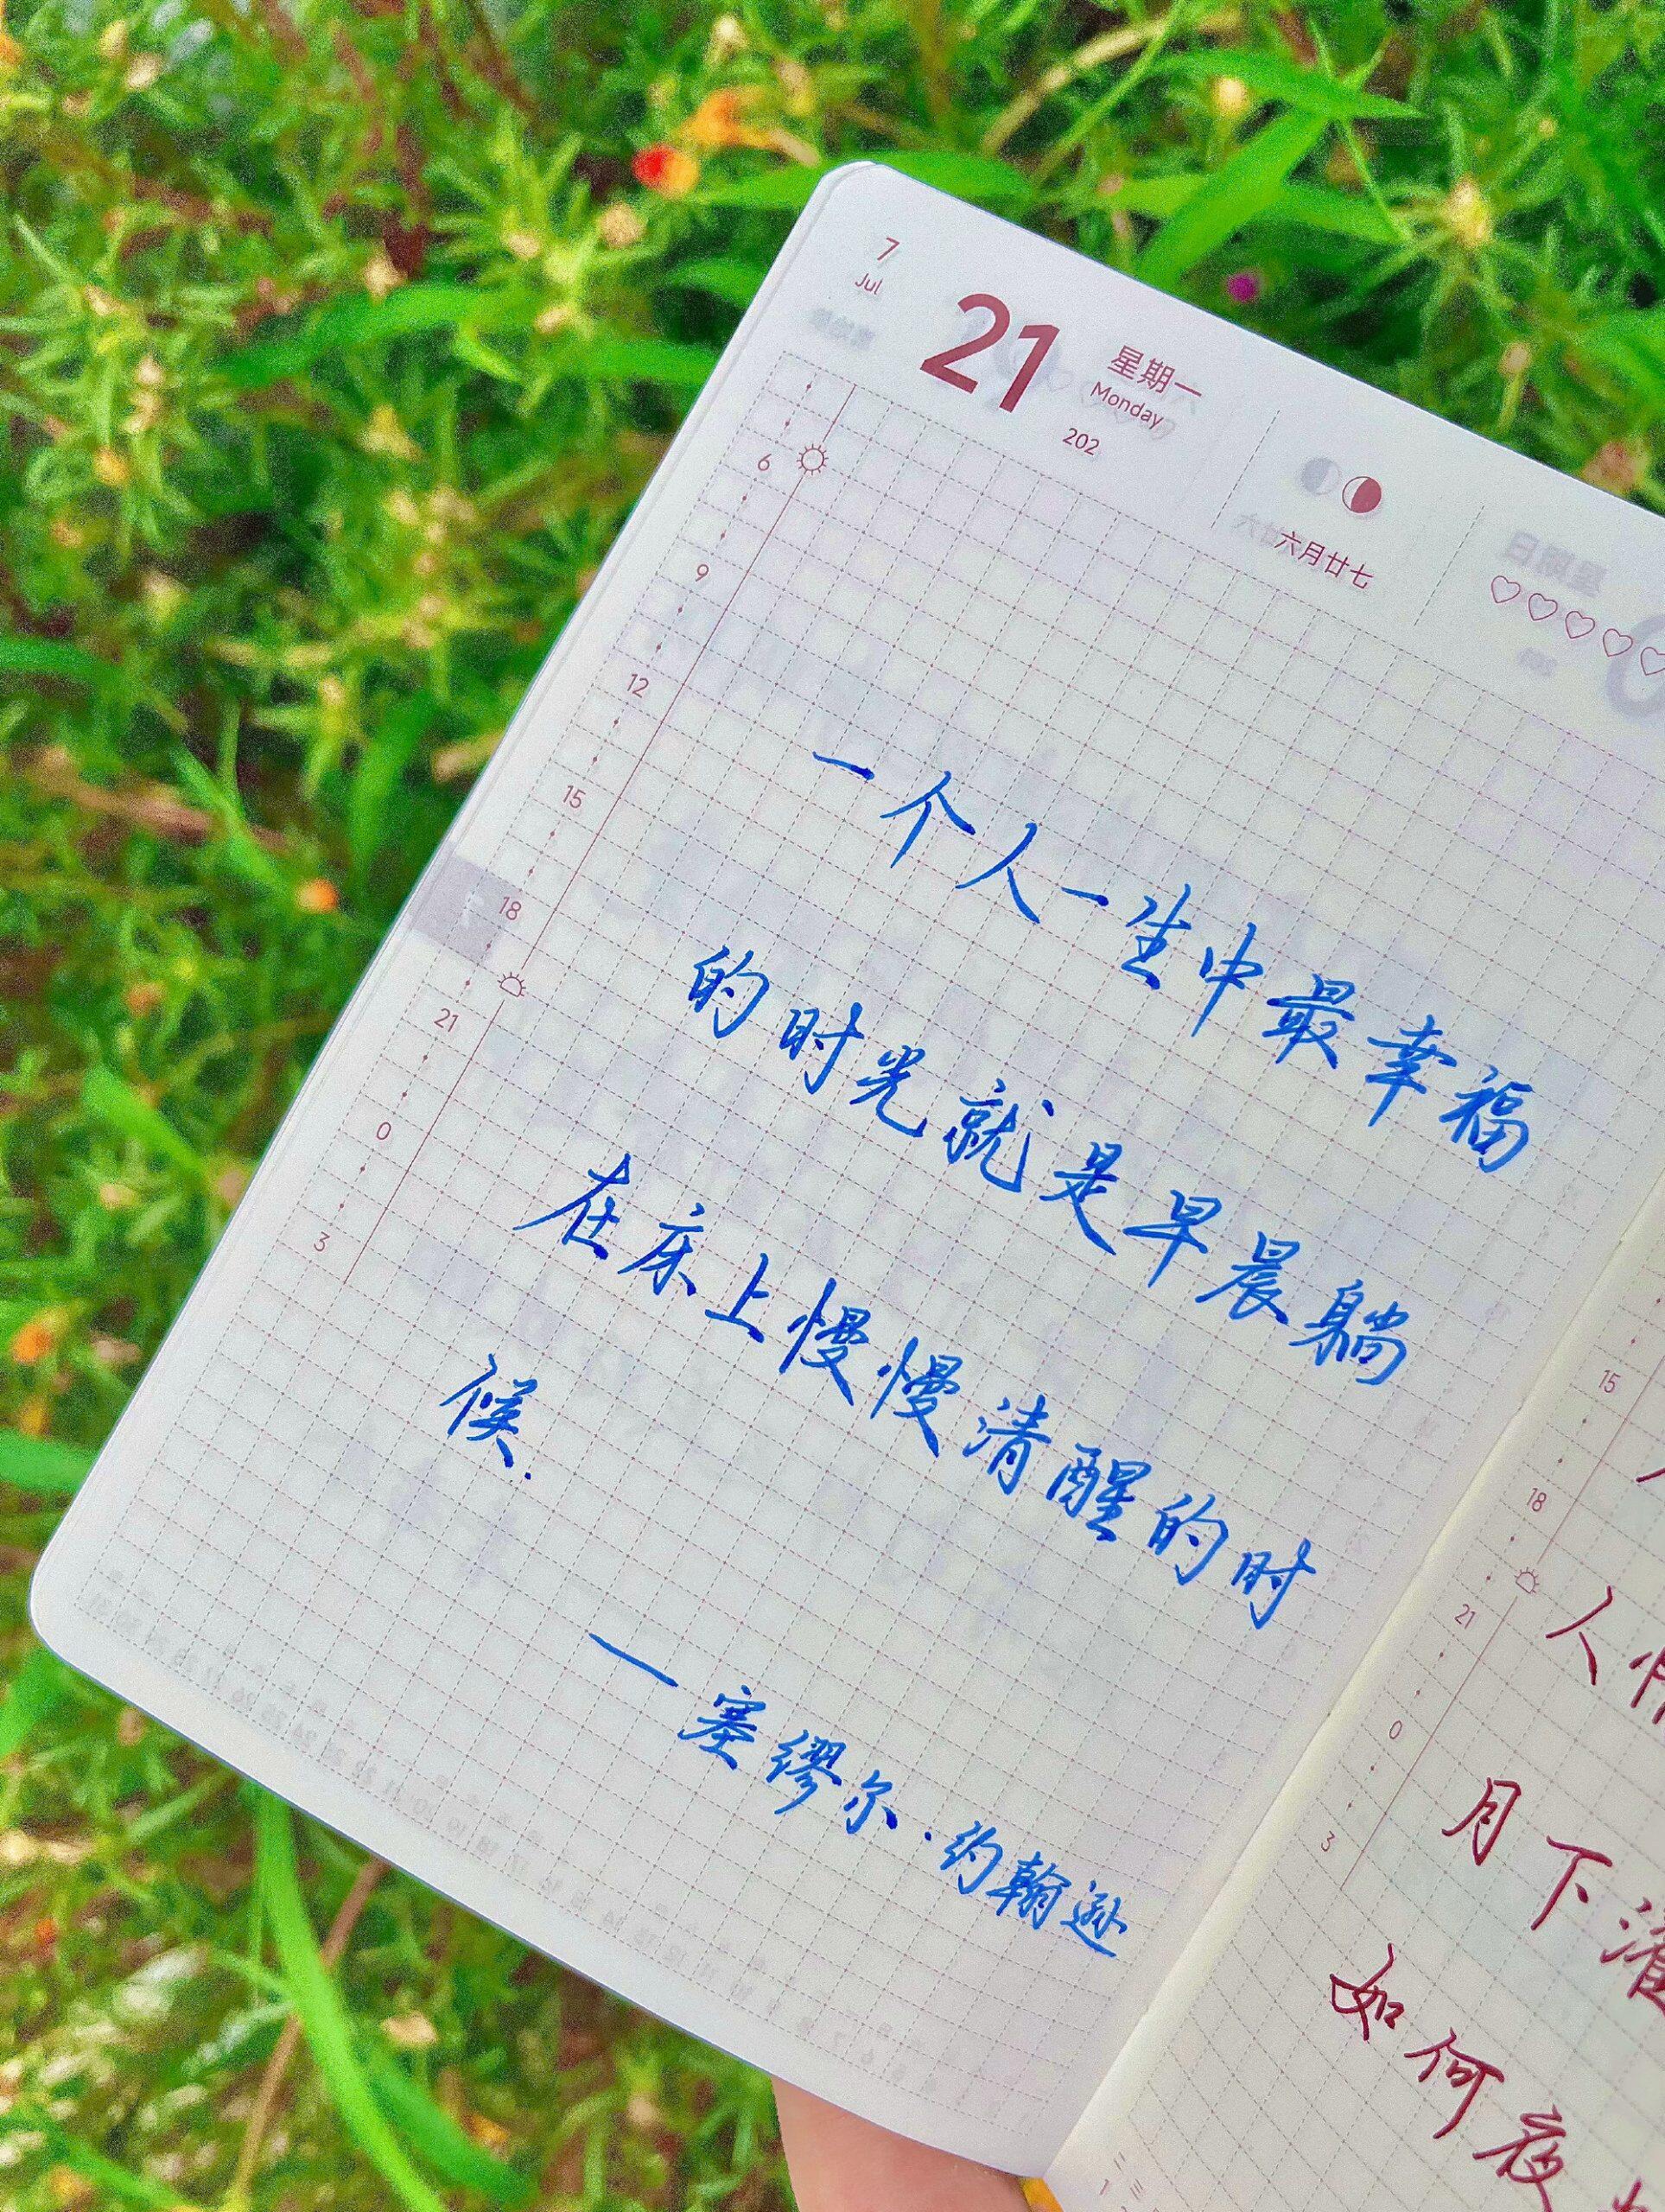 7
Jul
21
星期一
Monday
202
六月廿七
6
9
12
15
18
21
0
3
一个人一生中最幸福
的时光就是早晨躺
在床上慢慢清醒的时
候.
一塞缪尔·约翰逊
15
18
21
0
3
人
月下
如何夜